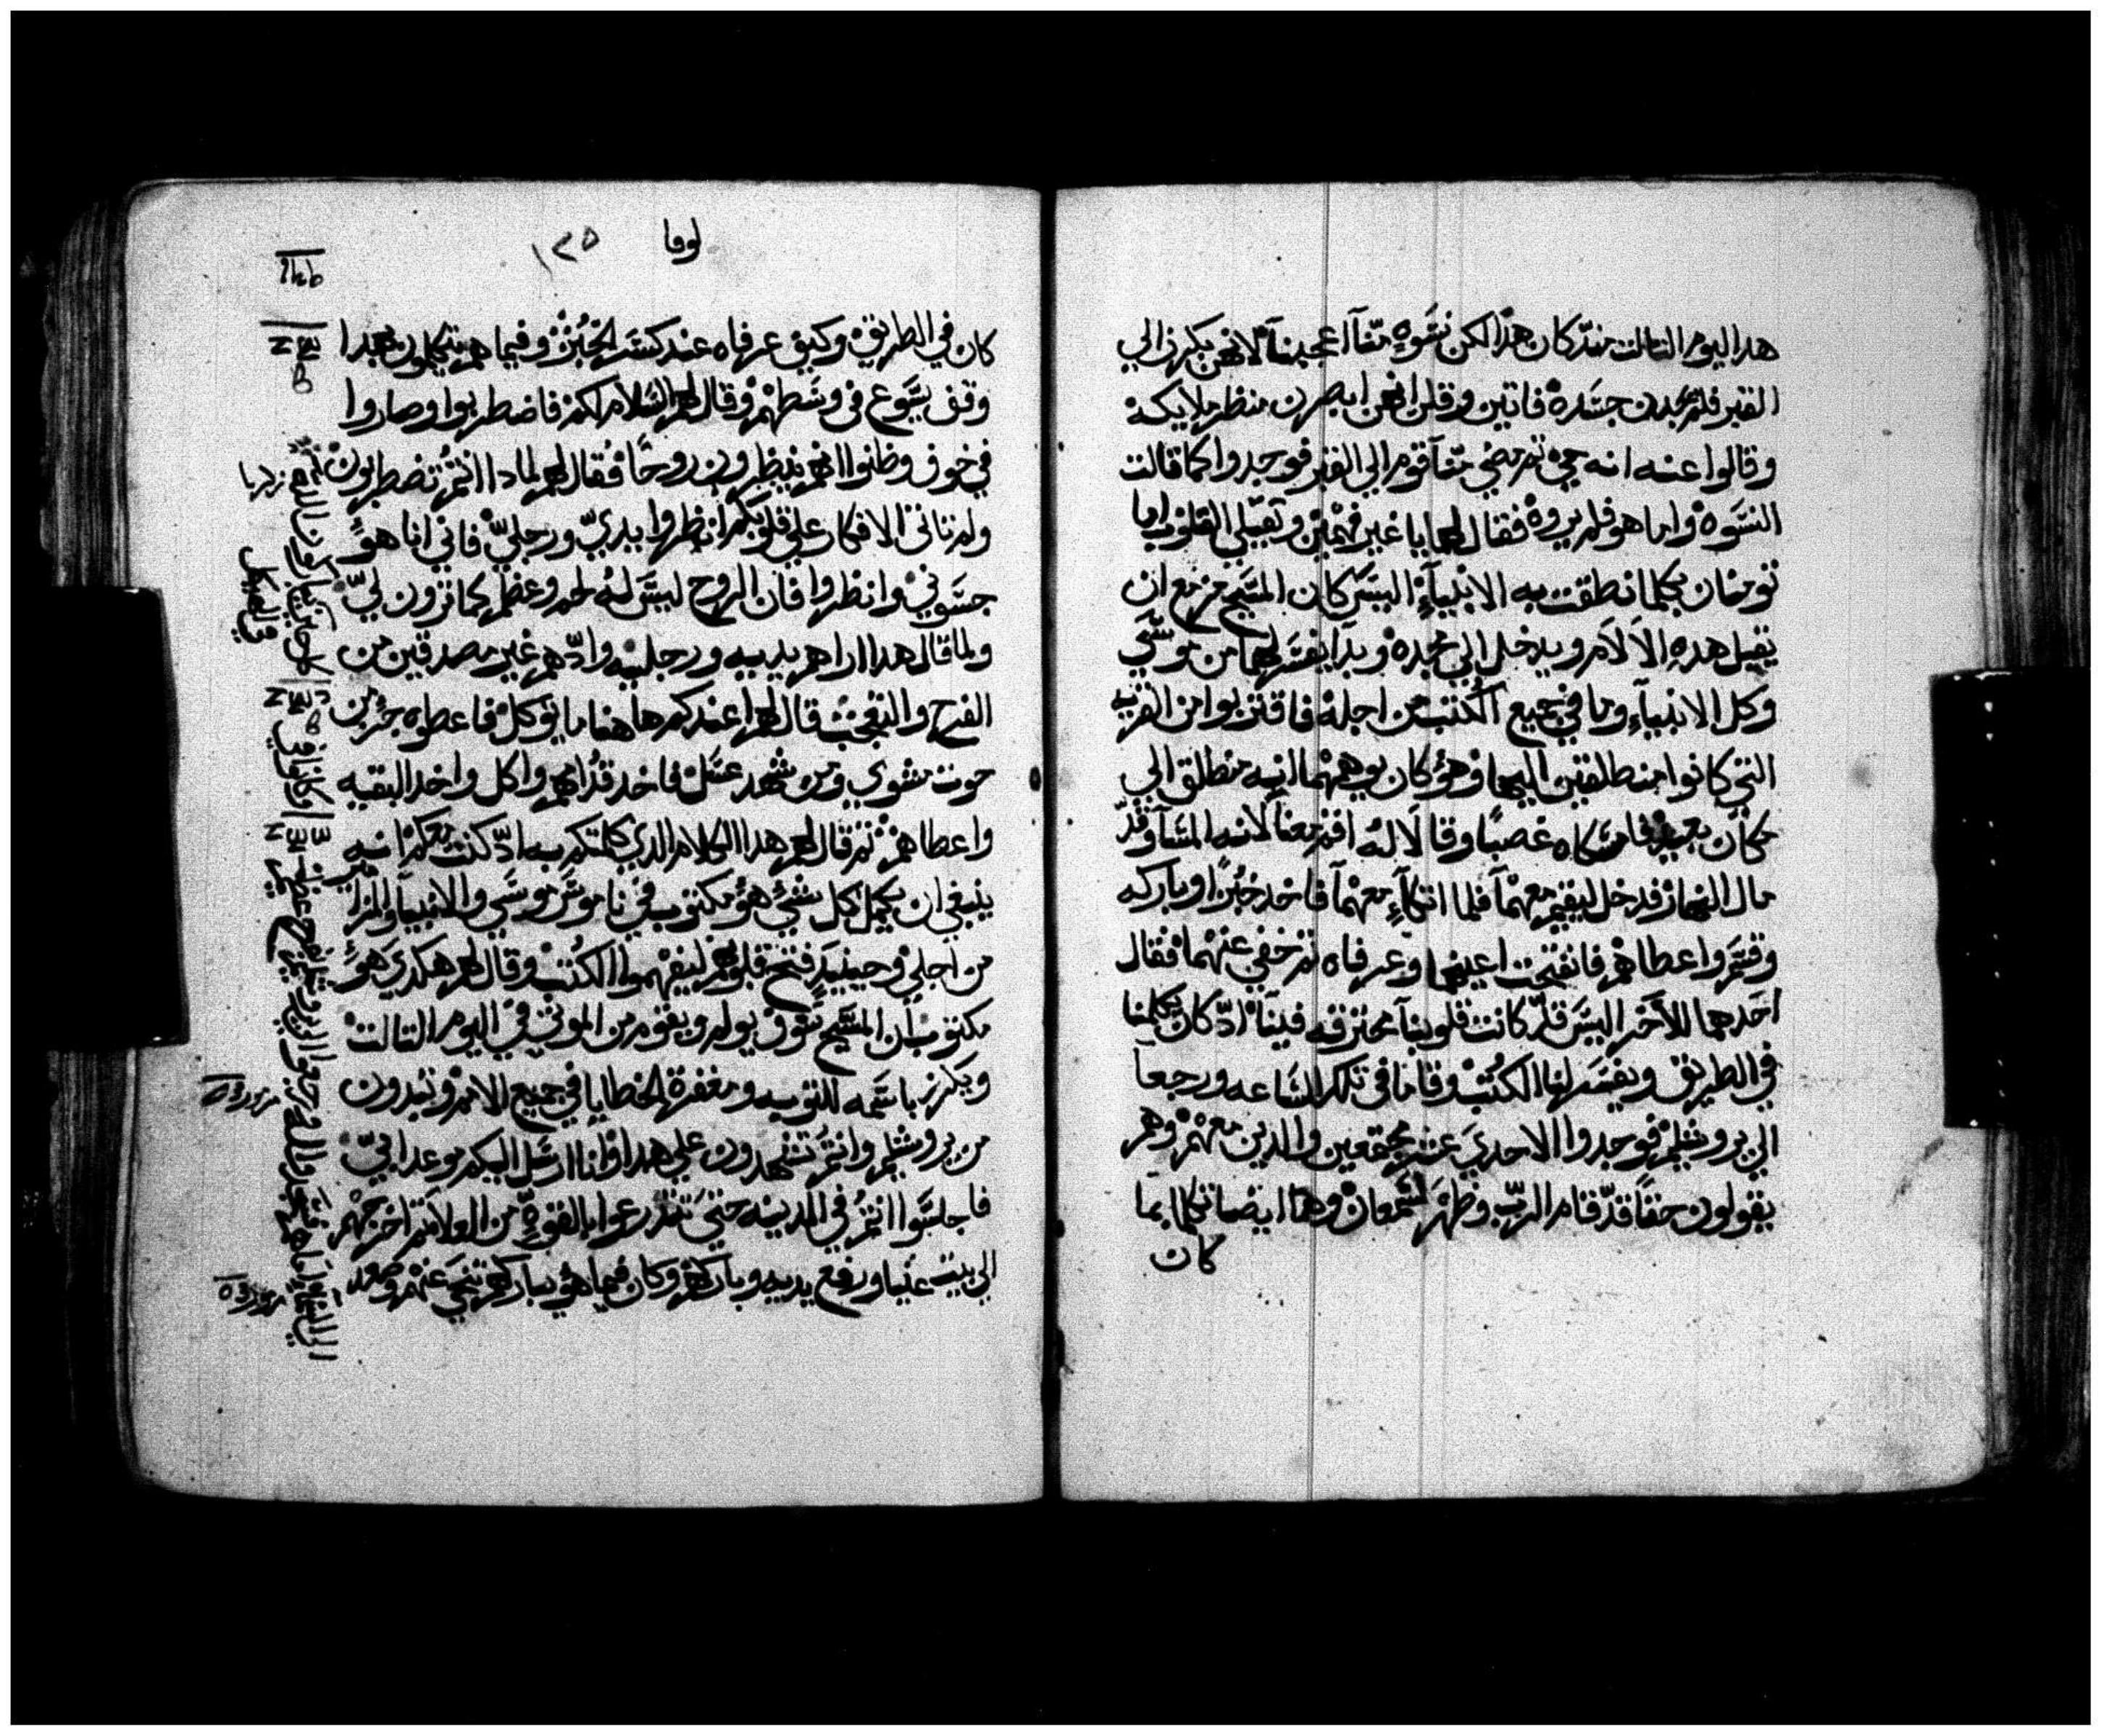 هدا اليوم التالت مند كان هدا لكن نسوه منا اعجبننا لانهن بكرن الي
القبر فلم يجدن جسده فاتين وقلن انهن ابصرن منظر ملايكه
وقالوا عنه انه حي تم مضي منا قوم الي القبر فوجدوا كما قالت
النسوه واما هو فلم يروه فقال لهما يا غير فهمين وتقيلي القلوب اما
تومنان بكلما نطقت به الانبياء اليس كان المسيح مزمع ان
يقبل هده الالام ويدخل الي مجده وبدا يفسر لهما من موسي
وكل الانبياء وما في جميع الكتب من اجله فاقتربوا من القريه
التي كانوا منطلقين اليها وهو كان يوهمهما انه منطلق الي
مكان بعيد فامسكاه غصبا وقالا له اقم معنا لانه المسا وقد
مال النهار فدخل ليقيم معهما فلما اتكاء معهما فاخد خبزا وباركه
وقسم واعطاهم فانفتحت اعينهما وعرفاه تم خفي عنهما فقال
احدهما للاخر اليس قد كانت قلوبنا محترقه فينا اد كان يكلمنا
في الطريق ويفسر لنا الكتب وقاما في تلك الساعه ورجعا
الي يروشليم فوجدوا الاحدي عشر مجتمعين والدين معهم وهم
يقولون حقا قد قام الرب وظهر لسمعان وهما ايضا تكلما بما
كان
لوقا ١٢٥
كان في الطريق وكيف عرفاه عند كسر الخبز وفيما هم يتكلمون بهدا
وقف يسوع في وسطهم وقال لهم السلام لكم فاضطربوا وصاروا
في خوف وظنوا انهم ينظرون روحا فقال لهم لمادا انتم تضطربون
ولم تاتي الافكار علي قلوبكم انظروا يدي ورجلي فاني انا هو
جسوني وانظروا فان الروح ليس له لحم وعظم كما ترون لي
ولما قال هدا اراهم يديه ورجليه واد هم غير مصدقين من
الفرح والتعجب قال لهم اعندكم هاهنا ما يوكل فاعطوه جزء من
حوت مشوي ومن شهد عسل فاخد قدامهم واكل واخد البقيه
واعطاهم تم قال لهم هدا الكلام الدي كلمتكم به اد كنت معكم انه
ينبغي ان يكمل كل شي هو مكتوب في ناموس موسي والانبيا والمزا
من اجلي وحينيد فتح قلوبهم ليفهموا الكتب وقال لهم هكدي هو
مكتوب ان المسيح سوف يولم ويقوم من الموتي في اليوم التالت
ويكرز باسمه للتوبه ومغفرة الخطايا في جميع الامم وتبدون
من يروشليم وانتم تشهدون علي هدا وانا ارسل اليكم موعد ابي
فاجلسوا انتم في المدينه حتي تتدرعوا بالقوه من العلا تم اخرجهم
الي بيت عنيا ورفع يديه وباركهم وكان فيما هو يباركهم تنحي عنهم وصعد